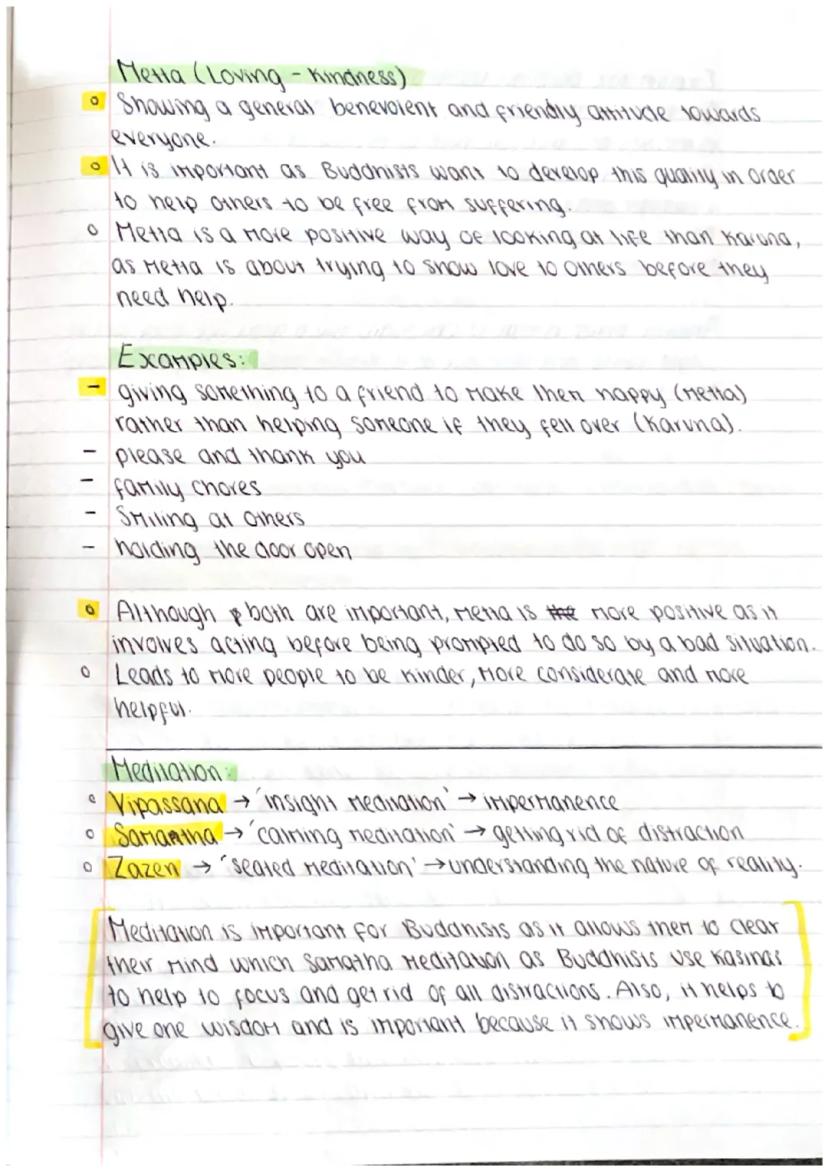 Metta (Loving - kindness)
◦ Showing a general benevolent and friendly attitude towards
everyone.
◦ It is important as Buddhists want to develop this quality in order
to help others to be free from suffering.
◦ Metta is a more positive way of looking at life than Karuna,
as Metta is about trying to show love to others before they
need help.
Examples:
- giving something to a friend to make them happy (Metta)
rather than helping someone if they fell over (Karuna).
- please and thank you
- family chores
- Smiling at others
- holding the door open
◦ Although both are important, Metta is more positive as it
involves acting before being prompted to do so by a bad situation.
◦ Leads to more people to be kinder, more considerate and more
helpful.
Meditation:
◦ Vipassana → 'insight meditation' → impermanence
◦ Samatha → 'calming meditation' → getting rid of distraction
◦ Zazen → 'seated meditation' → understanding the nature of reality.
Meditation is important for Buddhists as it allows them to clear
their mind which Samatha meditation as Buddhists use kasinas
to help to focus and get rid of all distractions. Also, it helps to
give one wisdom and is important because it shows impermanence.